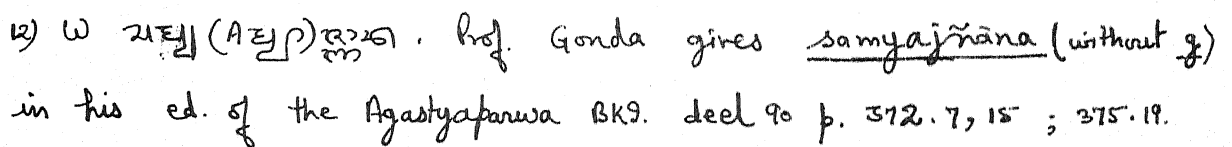 12) W (A) . Prof. Gonda gives samyajñāna (without g)
in his ed. of the Agastyaparwa BKI. deel 90 p. 372.7, 15 ; 375.19.